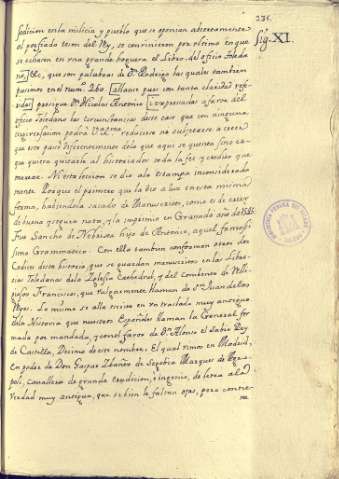 236.
Sig. XI.
sedieron en la milicia y pueblo que se oponian abiertamente
al porfiado teson del Rey, se convinieron por ultimo en que
se echasen en una grande hoguera el Libro del oficio Toleda
no, &c, que son palabras de Dn. Rodrigo las quales tambien
pusimos en el num. 260. allane pues con tanta claridad refe
ridas prosigue Dn. Nicolas Antonio i expresadas a favor del
oficio Toledano las circunstancias deste caso que con ninguna
me persuado podrá V. reducirse no sugetarse a creer
que este pasó diferentemente delo que aqui se quenta sino es
que quiera quitarla al historiador toda la fe y credito que
merece. Ni esta leccion se dio ala estampa inconsiderada
mente Porque el primero que la dio a luz en esta misma
forma, habiendola sacado de Manuscritos, como es de creer
de buena y segura nota, y la imprimio en Granada año de 1545
Fue Sancho de Nebrixa hijo de Antonio, aquel famosi
simo Grammatico. Con ella tambien conforman otros dos
Codices desta historia, que se guardan manuscritos en las Libre
rias Toledanas dela Iglesia Cathedral, y del Combento de Reli
giosos Franciscos, que vulgarmente llaman de Sn. Juan de los
Reyes. Lo mismo se alla escrito en un traslado muy antiguo
dela Historia que nuestros Españoles llaman la General for
mada por mandado, y con el favor de Dn. Alonso el Sabio Rey
de Castilla, Decimo de este nombre. El qual vimos en Madrid,
en poder de Don Gaspar Ibañez de Segobia Marques de Agro
poli, Cavallero de grande erudicion, e ingenio, de letra a la
verdad muy antigua, que si bien la faltan ojas, pero contie=
ne